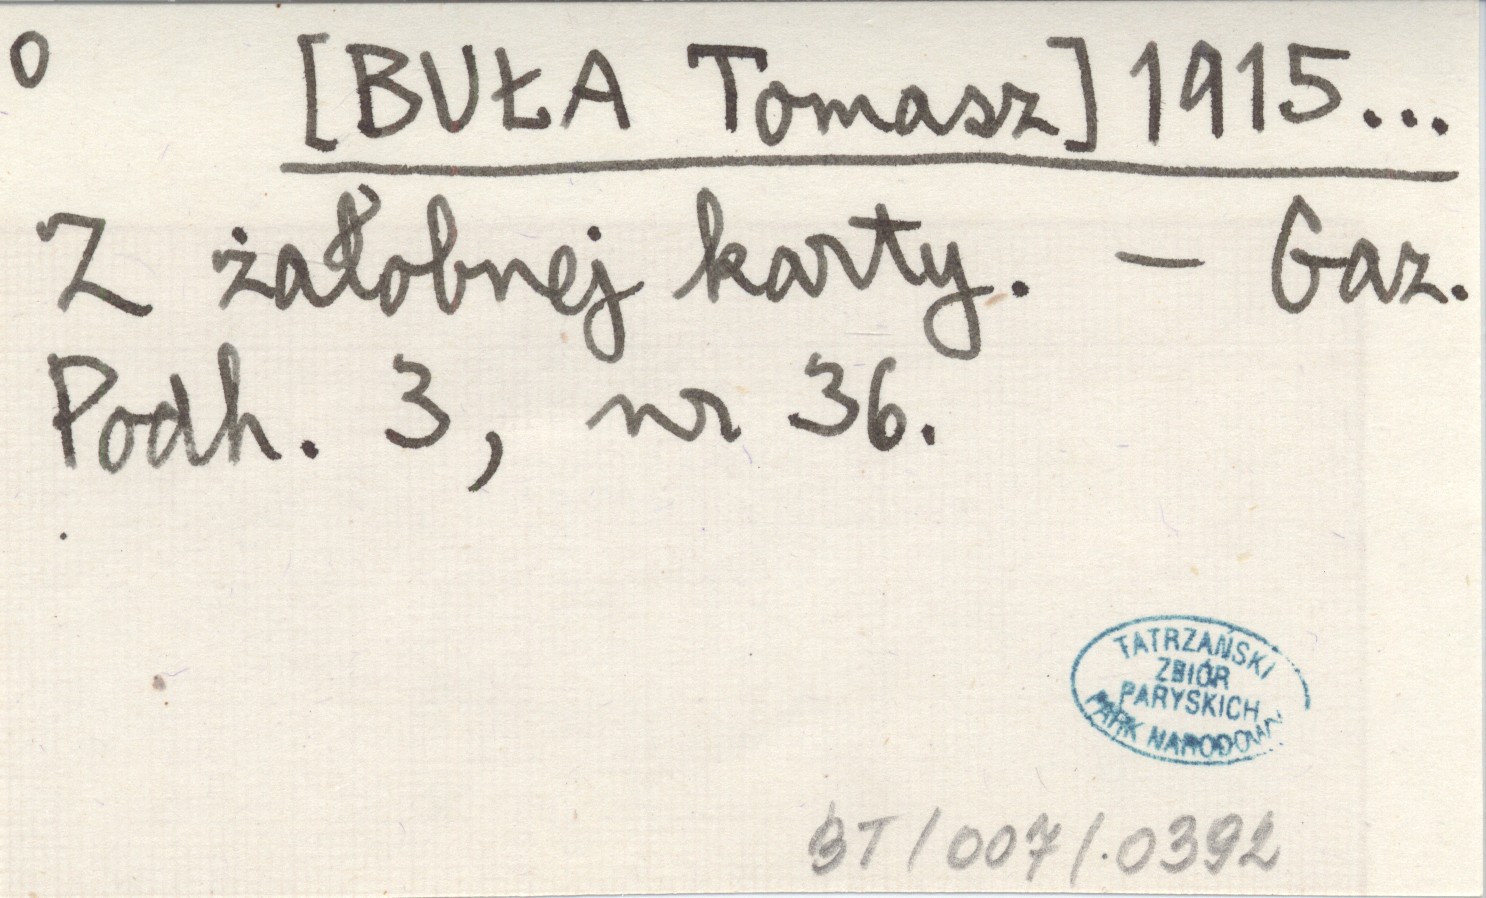 o [BUŁA Tomasz] 1915...
Z żałobnej karty. — Gaz.
Podh. 3, nr 36.
TATRZAŃSKI
ZBIÓR
PARYSKICH
PARK NARODOWY
BT/007/.0392